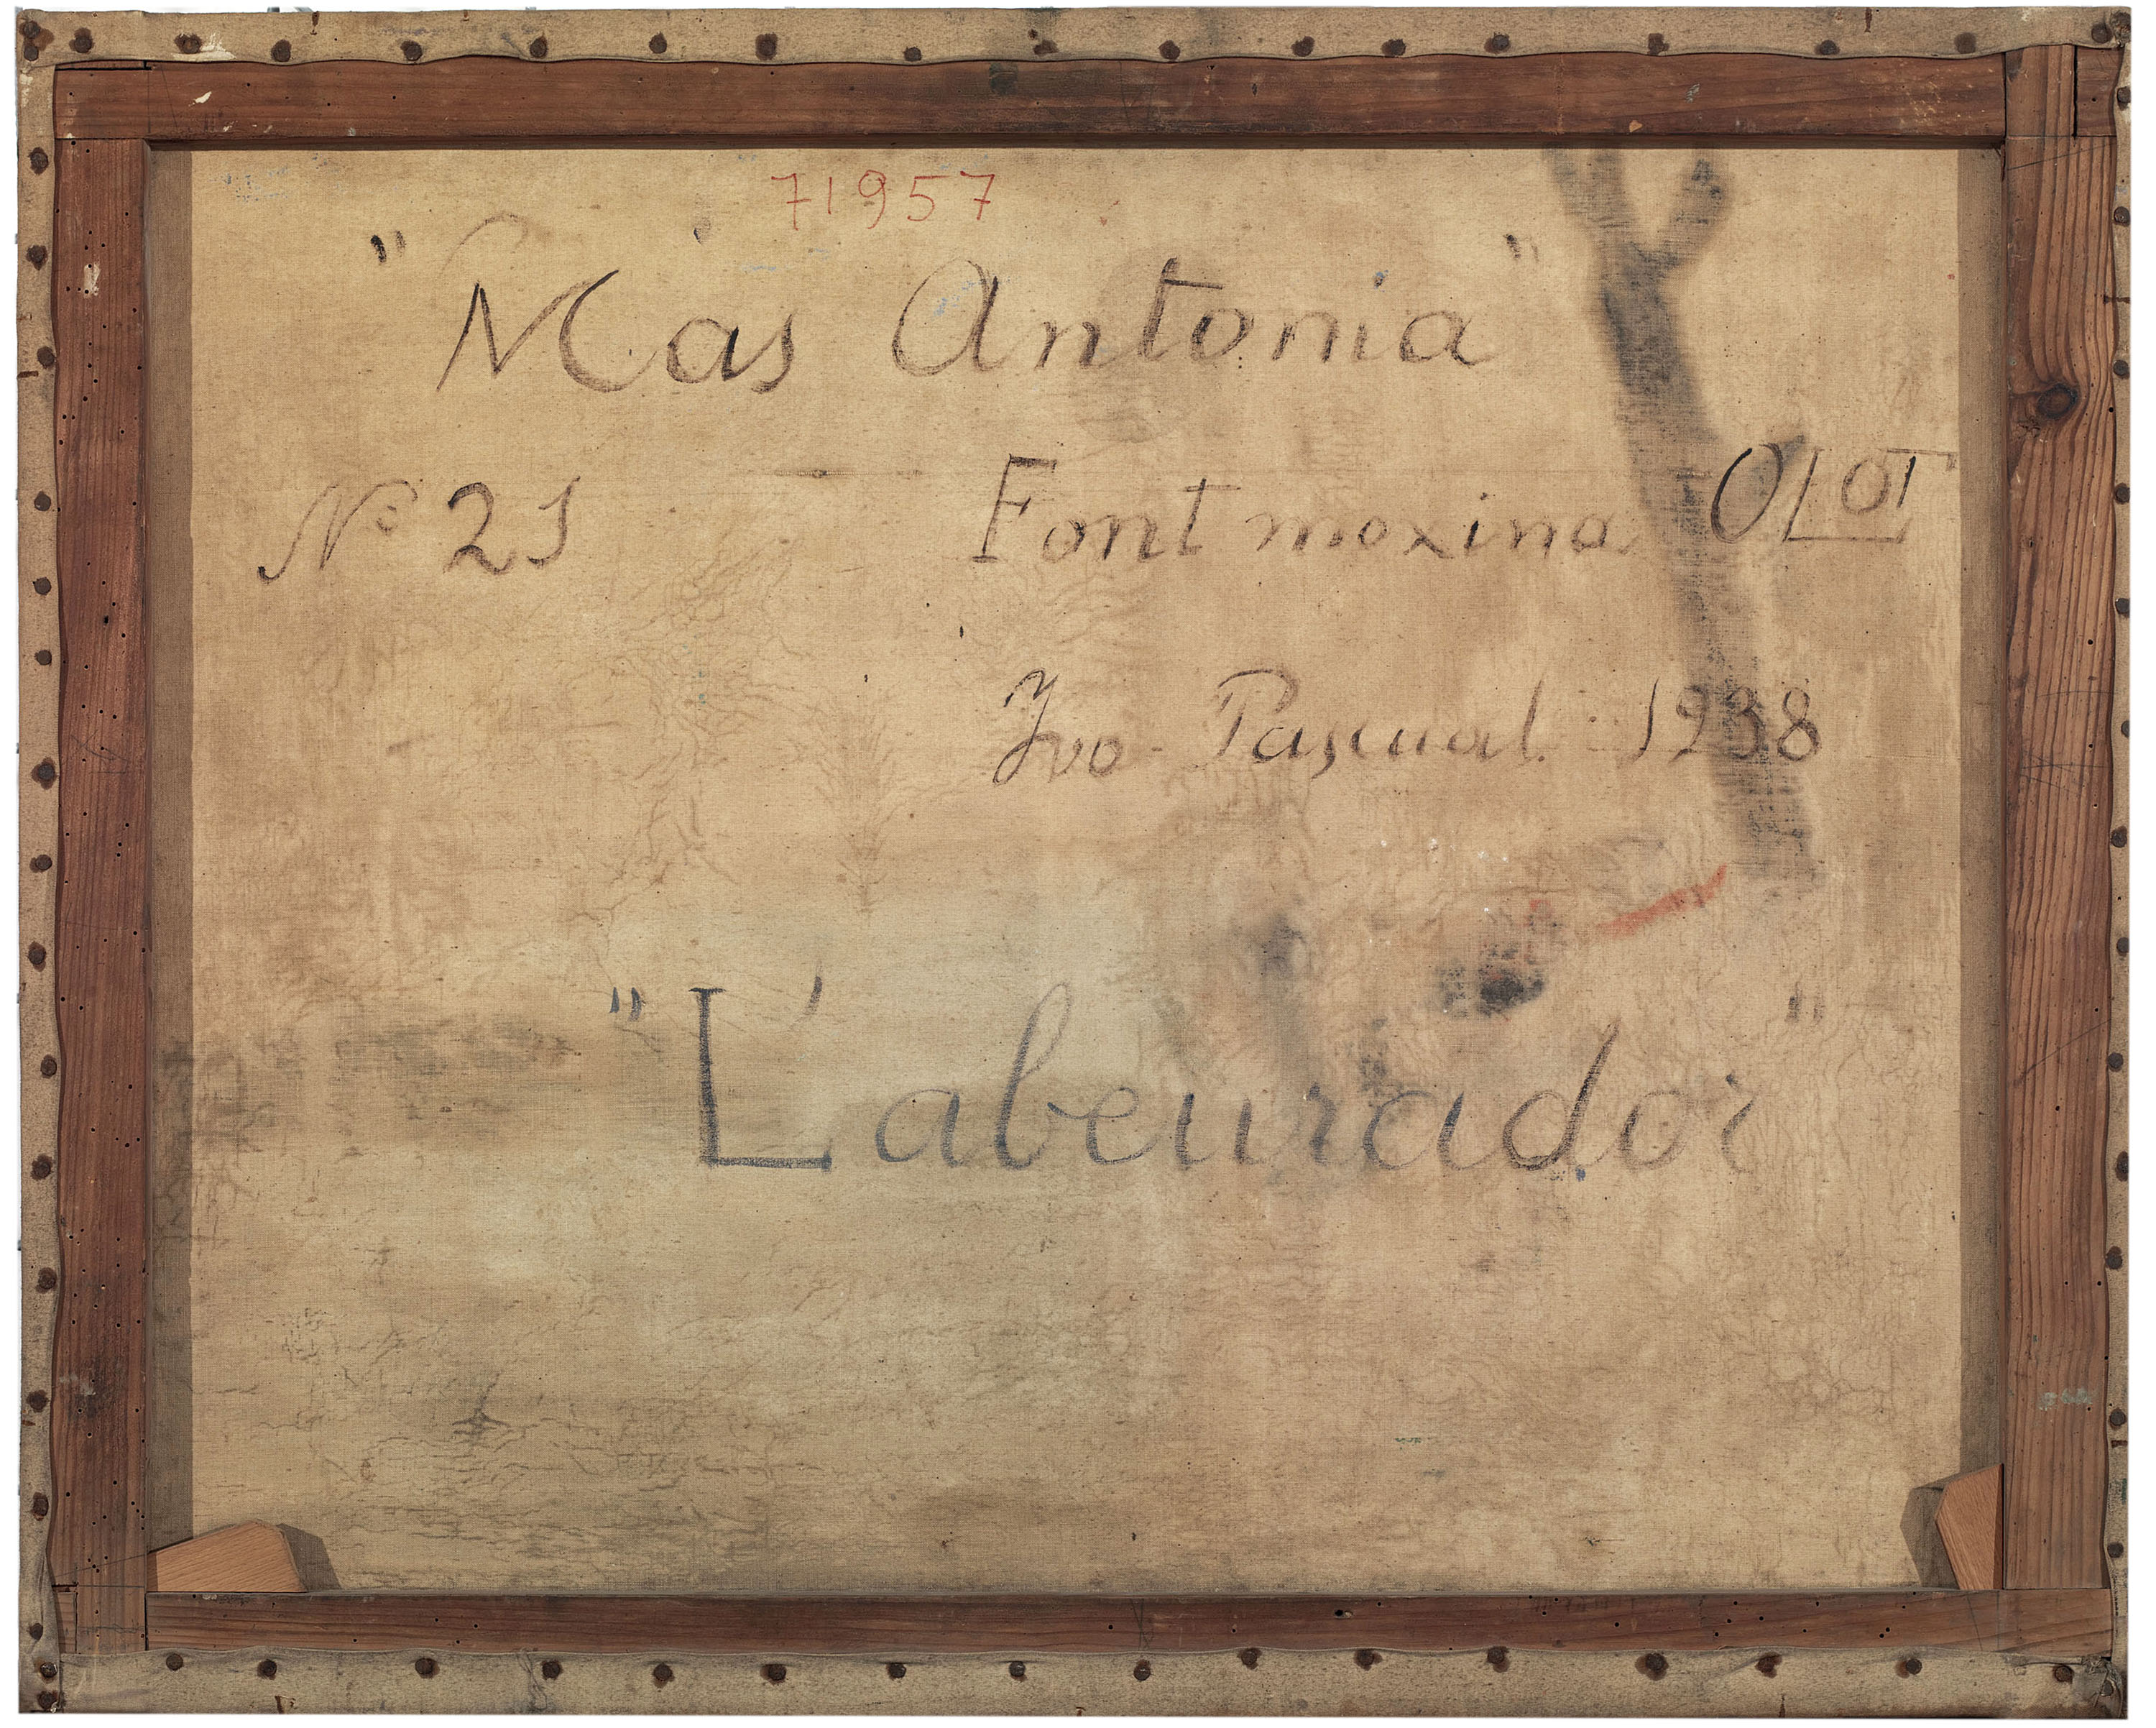 71957
"Mas Antonia"
Nº 21 Font moxina OLOT
Ivo Pascual 1938
"L'abeurador"